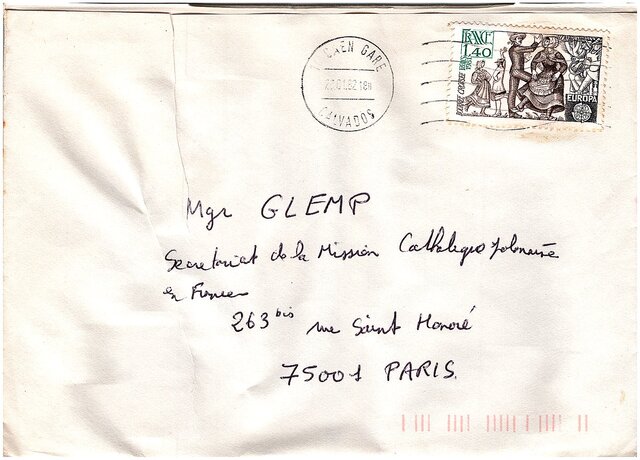 CAEN GARE
CALVADOS
FRANCE
1,40
EUROPA
Mgr GLEMP
Secretariat de la Mission Catholique polonaise
en France
263 bis rue Saint Honoré
75001 PARIS.